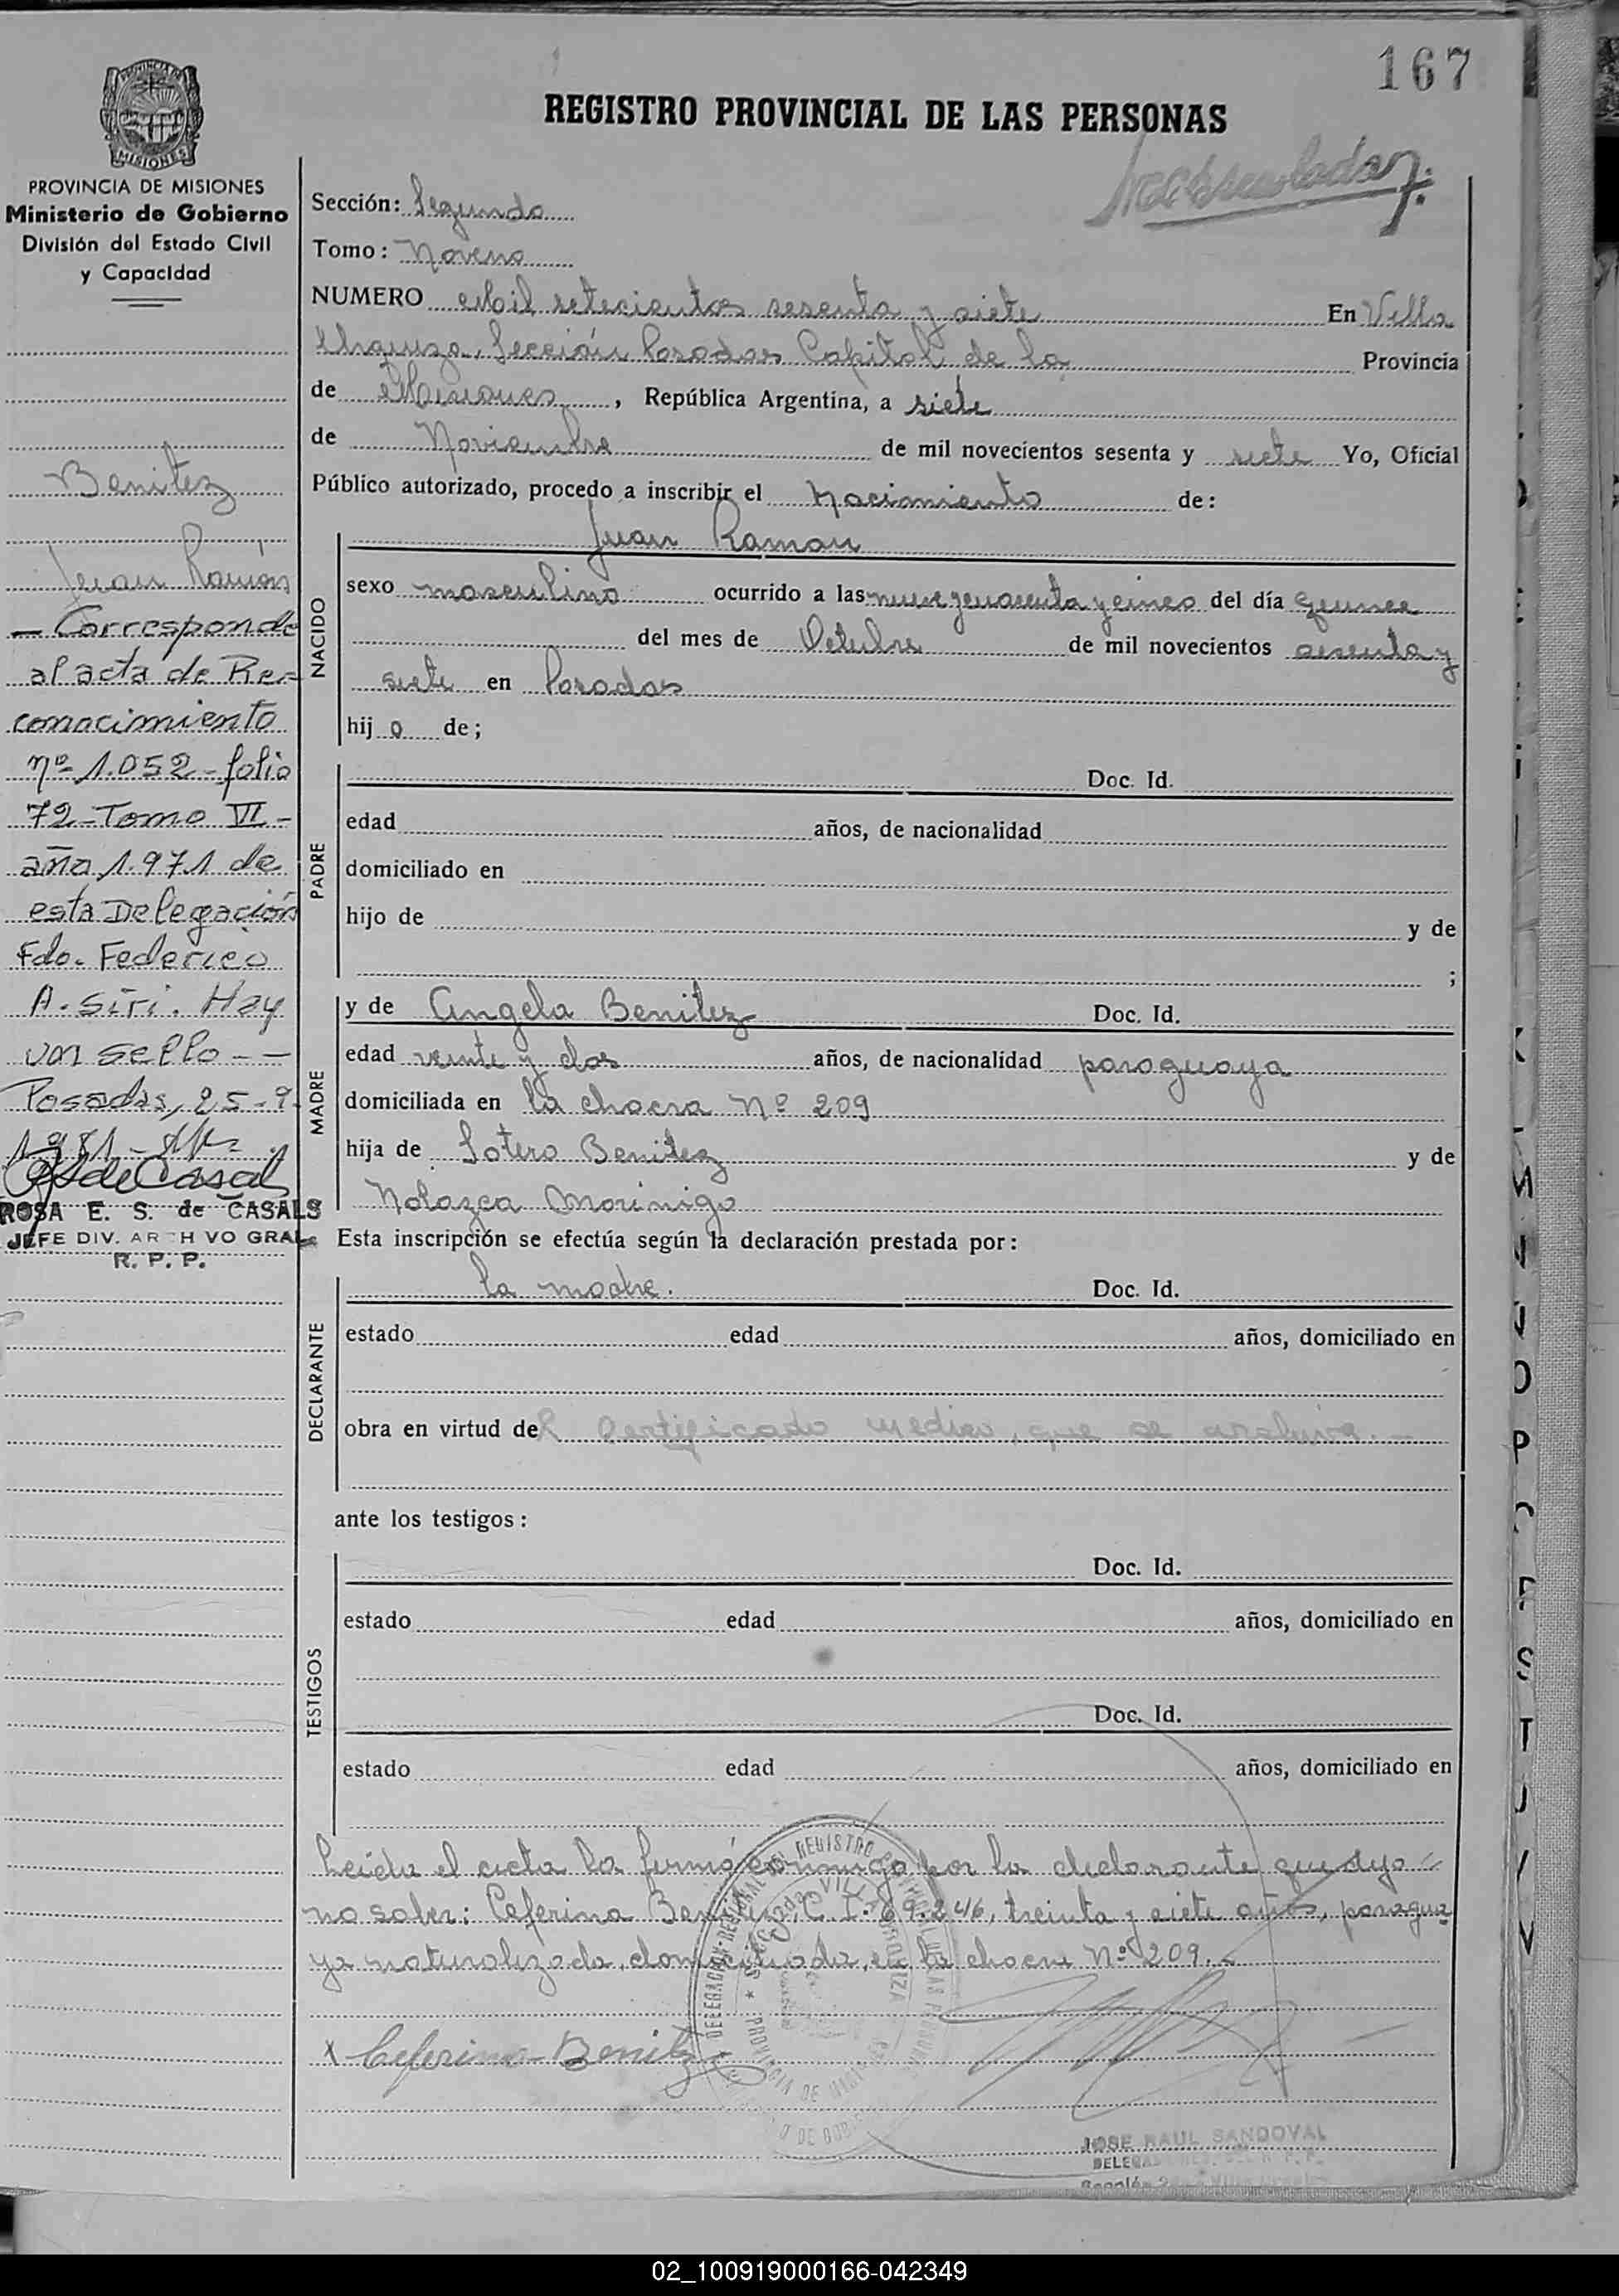 167
REGISTRO PROVINCIAL DE LAS PERSONAS
PROVINCIA DE MISIONES
Ministerio de Gobierno
División del Estado Civil
y Capacidad
Sección: Segunda
Tomo: Noveno
NUMERO Mil setecientos sesenta y siete En Villa
Urquiza, Sección Posadas Capital de la Provincia
de Misiones, República Argentina, a siete
de Noviembre de mil novecientos sesenta y siete Yo, Oficial
Público autorizado, procedo a inscribir el Nacimiento de:
Juan Ramon
NACIDO
sexo masculino ocurrido a las nueve y cuarenta y cinco del día quince
del mes de Octubre de mil novecientos sesenta y
siete en Posadas
hij o de;
PADRE
Doc. Id.
edad años, de nacionalidad
domiciliado en
hijo de y de
;
MADRE
y de Angela Benitez Doc. Id.
edad veinte y dos años, de nacionalidad paraguaya
domiciliada en la chacra Nº 209
hija de Sotero Benitez y de
Nolazca Morinigo
Esta inscripción se efectúa según la declaración prestada por:
DECLARANTE
la madre. Doc. Id.
estado edad años, domiciliado en
obra en virtud del Certificado medico, que se archiva.-
ante los testigos:
TESTIGOS
Doc. Id.
estado edad años, domiciliado en
Doc. Id.
estado edad años, domiciliado en
Leida el acta la firmó conmigo por la declarante que dijo
no saber: Ceferina Benitez, C.I. 69.246, treinta y siete años, paragua
ya naturalizada, domiciliada, en la chacra Nº 209.-
x Ceferina Benitez
JOSE RAUL SANDOVAL
Benitez
Juan Ramón
- Corresponde
al acta de Re-
conocimiento
nº 1.052 - folio
72 - Tomo VI -
año 1.971 de
esta Delegación
Fdo. Federico
A. Siri. Hay
un sello - -
Posadas, 25-9-
1981 -
ROSA E. S. de CASALS
JEFE DIV. ARCHIVO GRAL.
R. P. P.
02_100919000166-042349